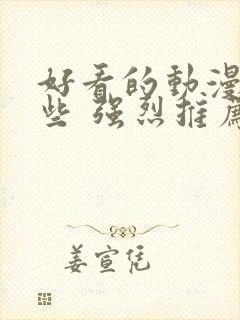 好看的動漫
些 強烈推薦
姜宣凭